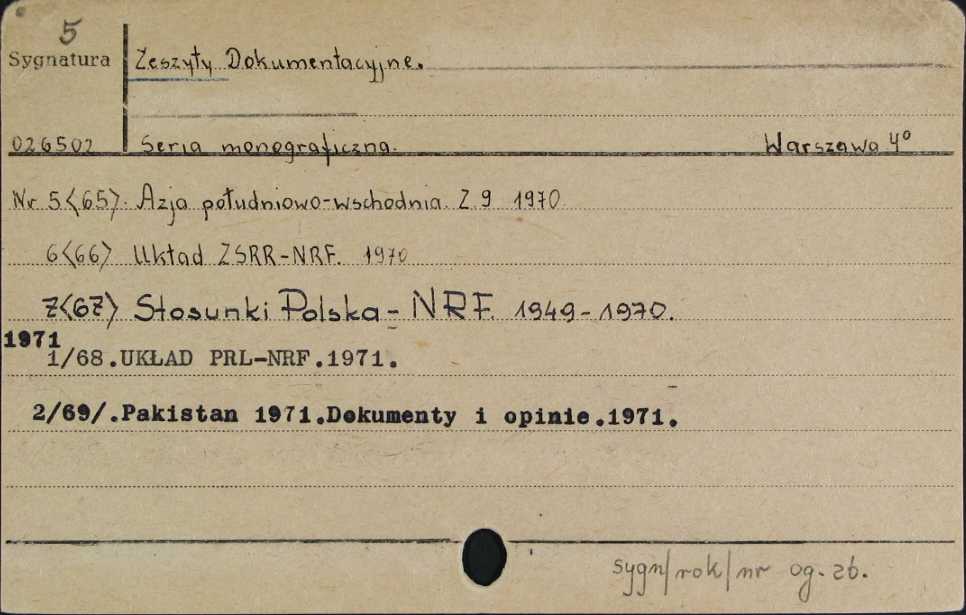 5
Sygnatura Zeszyty Dokumentacyjne.
026502 Seria monograficzna. Warszawa 4°
Nr 5<65>. Azja południowo-wschodnia. Z 9 1970
6<66> Układ ZSRR-NRF. 1970
7<67> Stosunki Polska-NRF. 1949-1970.
1971
1/68.UKŁAD PRL-NRF.1971.
2/69/.Pakistan 1971.Dokumenty i opinie.1971.
sygn/rok/nr og. zb.